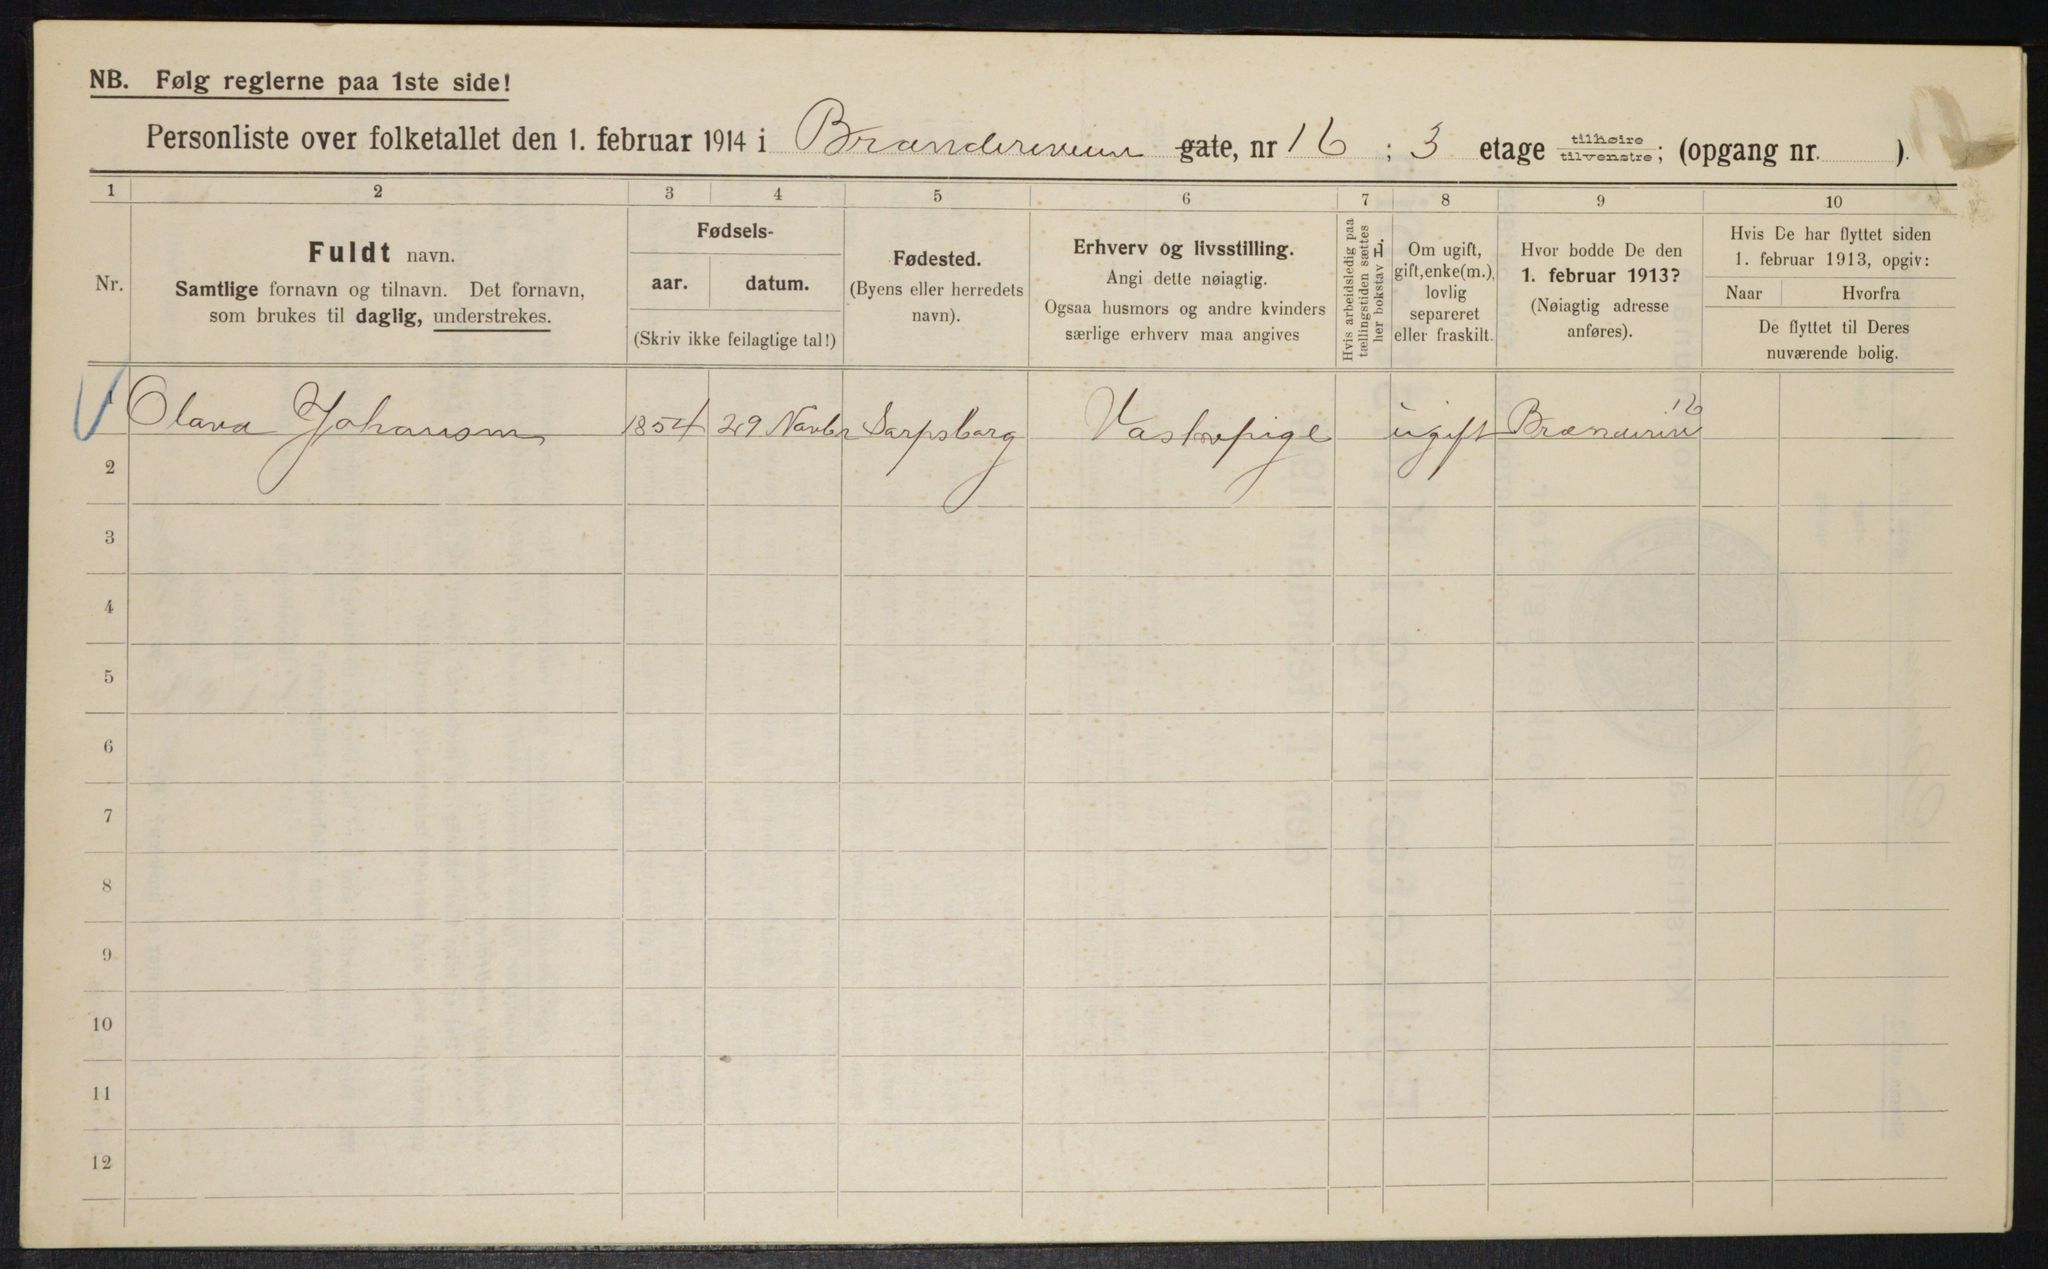 NB. Følg reglerne paa 1ste side!
Personliste over folketallet den 1. februar 1914 i gate, nr 16 ; 3 etage tilhøire tilvenstre; (opgang nr. ).
1 2 3 4 5 6 7 8 9 10
Nr.
Fuldt navn.
Samtlige fornavn og tilnavn. Det fornavn,
som brukes til daglig, understrekes.
Fødsels-
aar. datum.
(Skriv ikke feilagtige tal!)
Fødested.
(Byens eller herredets
navn).
Erhverv og livsstilling.
Angi dette nøiagtig.
Ogsaa husmors og andre kvinders
særlige erhverv maa angives
Hvis arbeidsledig paa
tællingstiden sættes
her bokstav L.
Om ugift,
gift, enke(m.),
lovlig
separeret
eller fraskilt.
Hvor bodde De den
1. februar 1913?
(Nøiagtig adresse
anføres).
Hvis De har flyttet siden
1. februar 1913, opgiv:
Naar Hvorfra
De flyttet til Deres
nuværende bolig.
1 Olava Johansen 1854 29 Novbr Sarpsborg ugift 16
2
3
4
5
6
7
8
9
10
11
12